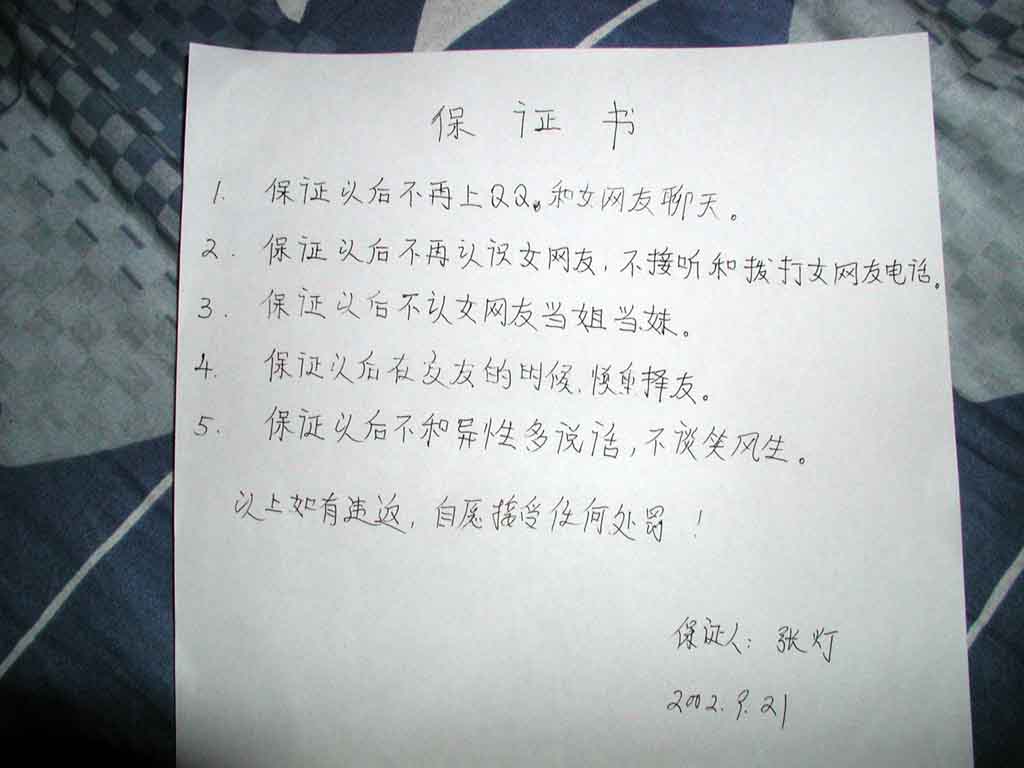 保 证 书
1. 保证以后不再上QQ。和女网友聊天。
2. 保证以后不再认识女网友,不接听和拨打女网友电话。
3. 保证以后不认女网友当姐当妹。
4. 保证以后在交友的时候,慎重择友。
5. 保证以后不和异性多说话,不谈笑风生。
以上如有违返,自愿接受任何处罚!
保证人:张灯
2002.9.21